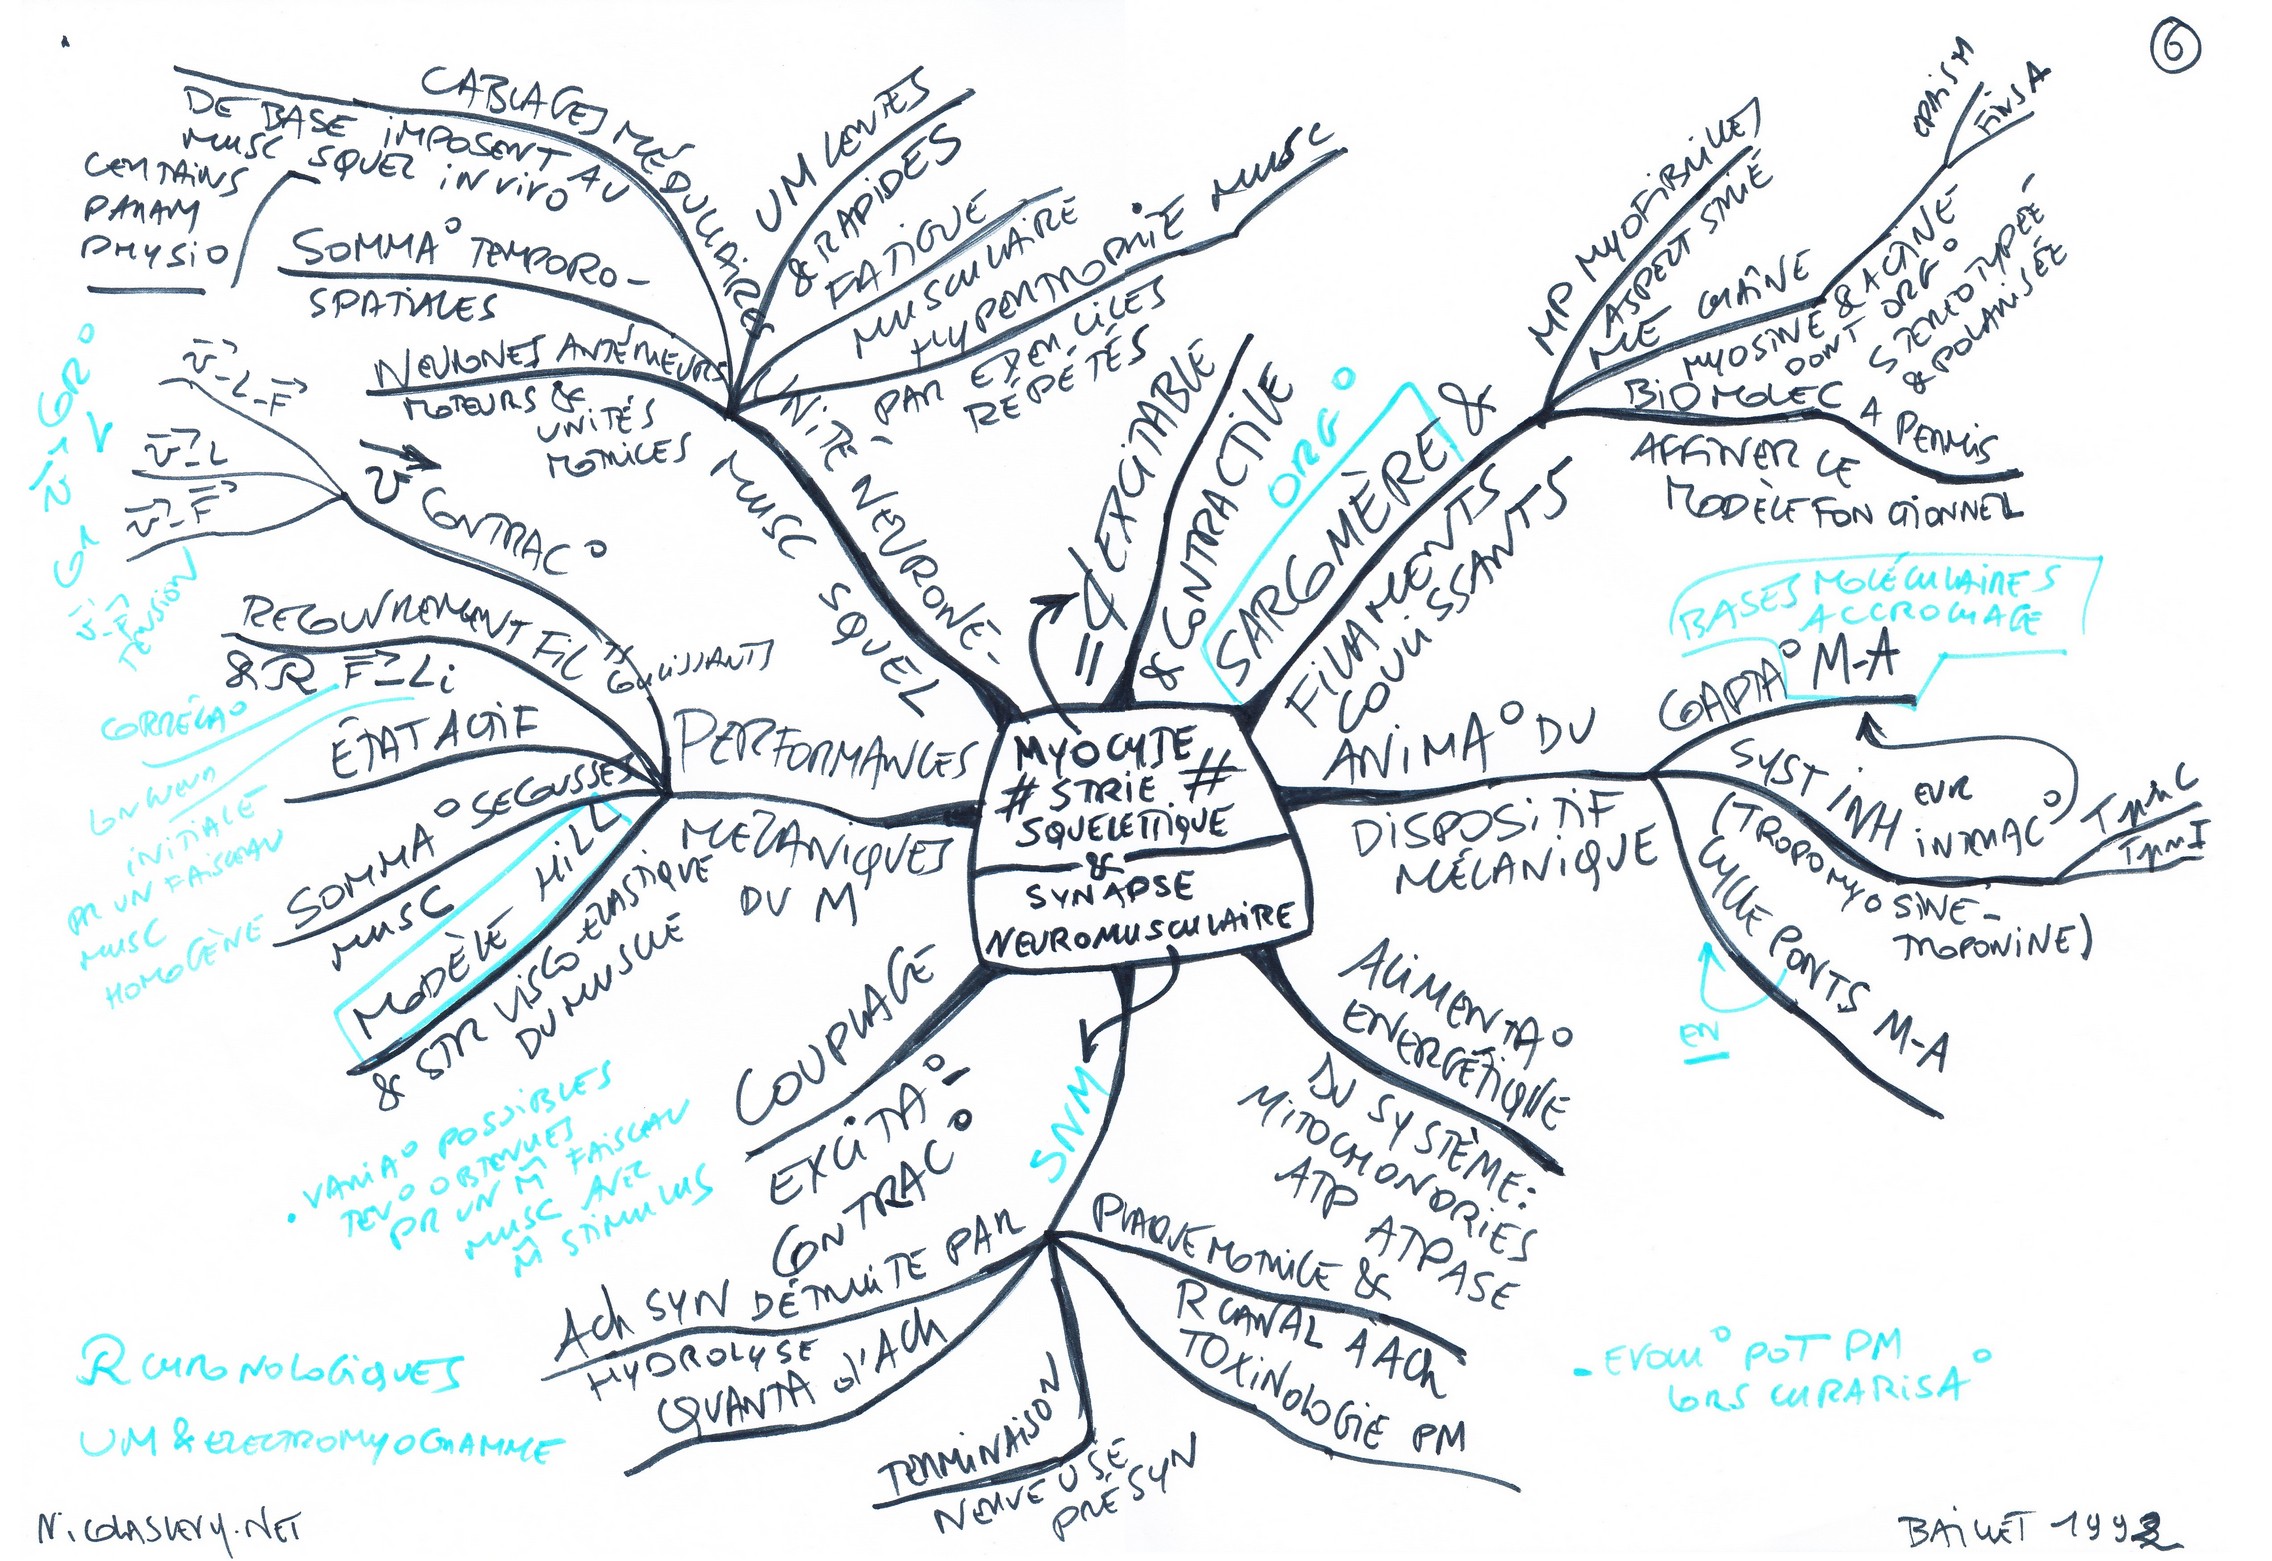 6
CABLAGES MÉDULLAIRES
DE BASE IMPOSENT AU
MUSC SQUEL IN VIVO
CERTAINS
PARAM
PHYSIO
SOMMA° TEMPORO-
SPATIALES
NEURONES ANTÉRIEURS
MOTEURS &
UNITÉS
MOTRICES
UM LENTES
& RAPIDES
FATIGUE
MUSCULAIRE
HYPERTROPHIE MUSC
PAR EXERCICES
RÉPÉTÉS
NITÉ NEURONE-
MUSC
SQUEL
EXCITABLE
& CONTRACTILE
ORG°
SARCOMÈRE &
FILAMENTS
COULISSANTS
MP MYOFIBRILLES
ASPECT STRIÉ
ME CHAÎNE
MYOSINE & ACTINE
DONT ORG°
STÉRÉOTYPÉE
& POLARISÉE
EPAIS M
FINS A
BIO MOLEC A PERMIS
AFFINER LE
MODÈLE FONCTIONNEL
v-L-F
v-L
v-F
v CONTRAC°
v-F
TENSION
RECOUVREMENT FIL COULISSANTS
& R F-Li
CORRÉLA°
LONGUEUR
INITIALE
PR UN FAISCEAU
MUSC
HOMOGÈNE
ÉTAT ACTIF
SOMMA° SECOUSSES
MUSC
MODÈLE HILL
& STR VISCO-ELASTIQUE
DU MUSCLE
PERFORMANCES
MECANIQUES
DU M
MYOCYTE
# STRIE #
SQUELETTIQUE
&
SYNAPSE
NEUROMUSCULAIRE
ANIMA° DU
DISPOSITIF
MÉCANIQUE
BASES MOLÉCULAIRES
ACCROCHAGE
CAPTA° M-A
SYST INH
(TROPOMYOSINE-
TROPONINE)
INTRAC°
TpnC
TpnI
CYCLE PONTS M-A
EN
ALIMENTA°
ENERGÉTIQUE
DU SYSTÈME:
MITOCHONDRIES
ATP ATPASE
COUPLAGE
EXCITA°-
CONTRAC°
SNM
• VARIA° POSSIBLES
TENS° OBTENUES
PR UN M̂ FAISCEAU
MUSC AVEC
M̂ STIMULUS
ACh SYN DÉTRUITE PAR
HYDROLYSE
QUANTA d'ACh
TERMINAISON
NERVEUSE
PRÉSYN
PLAQUE MOTRICE &
R CANAL À ACh
TOXINOLOGIE PM
- EVOLU° POT PM
LORS CURARISA°
R CHRONOLOGIQUES
UM & ELECTROMYOGRAMME
NICOLASLEVY.NET
BAILLET 1992